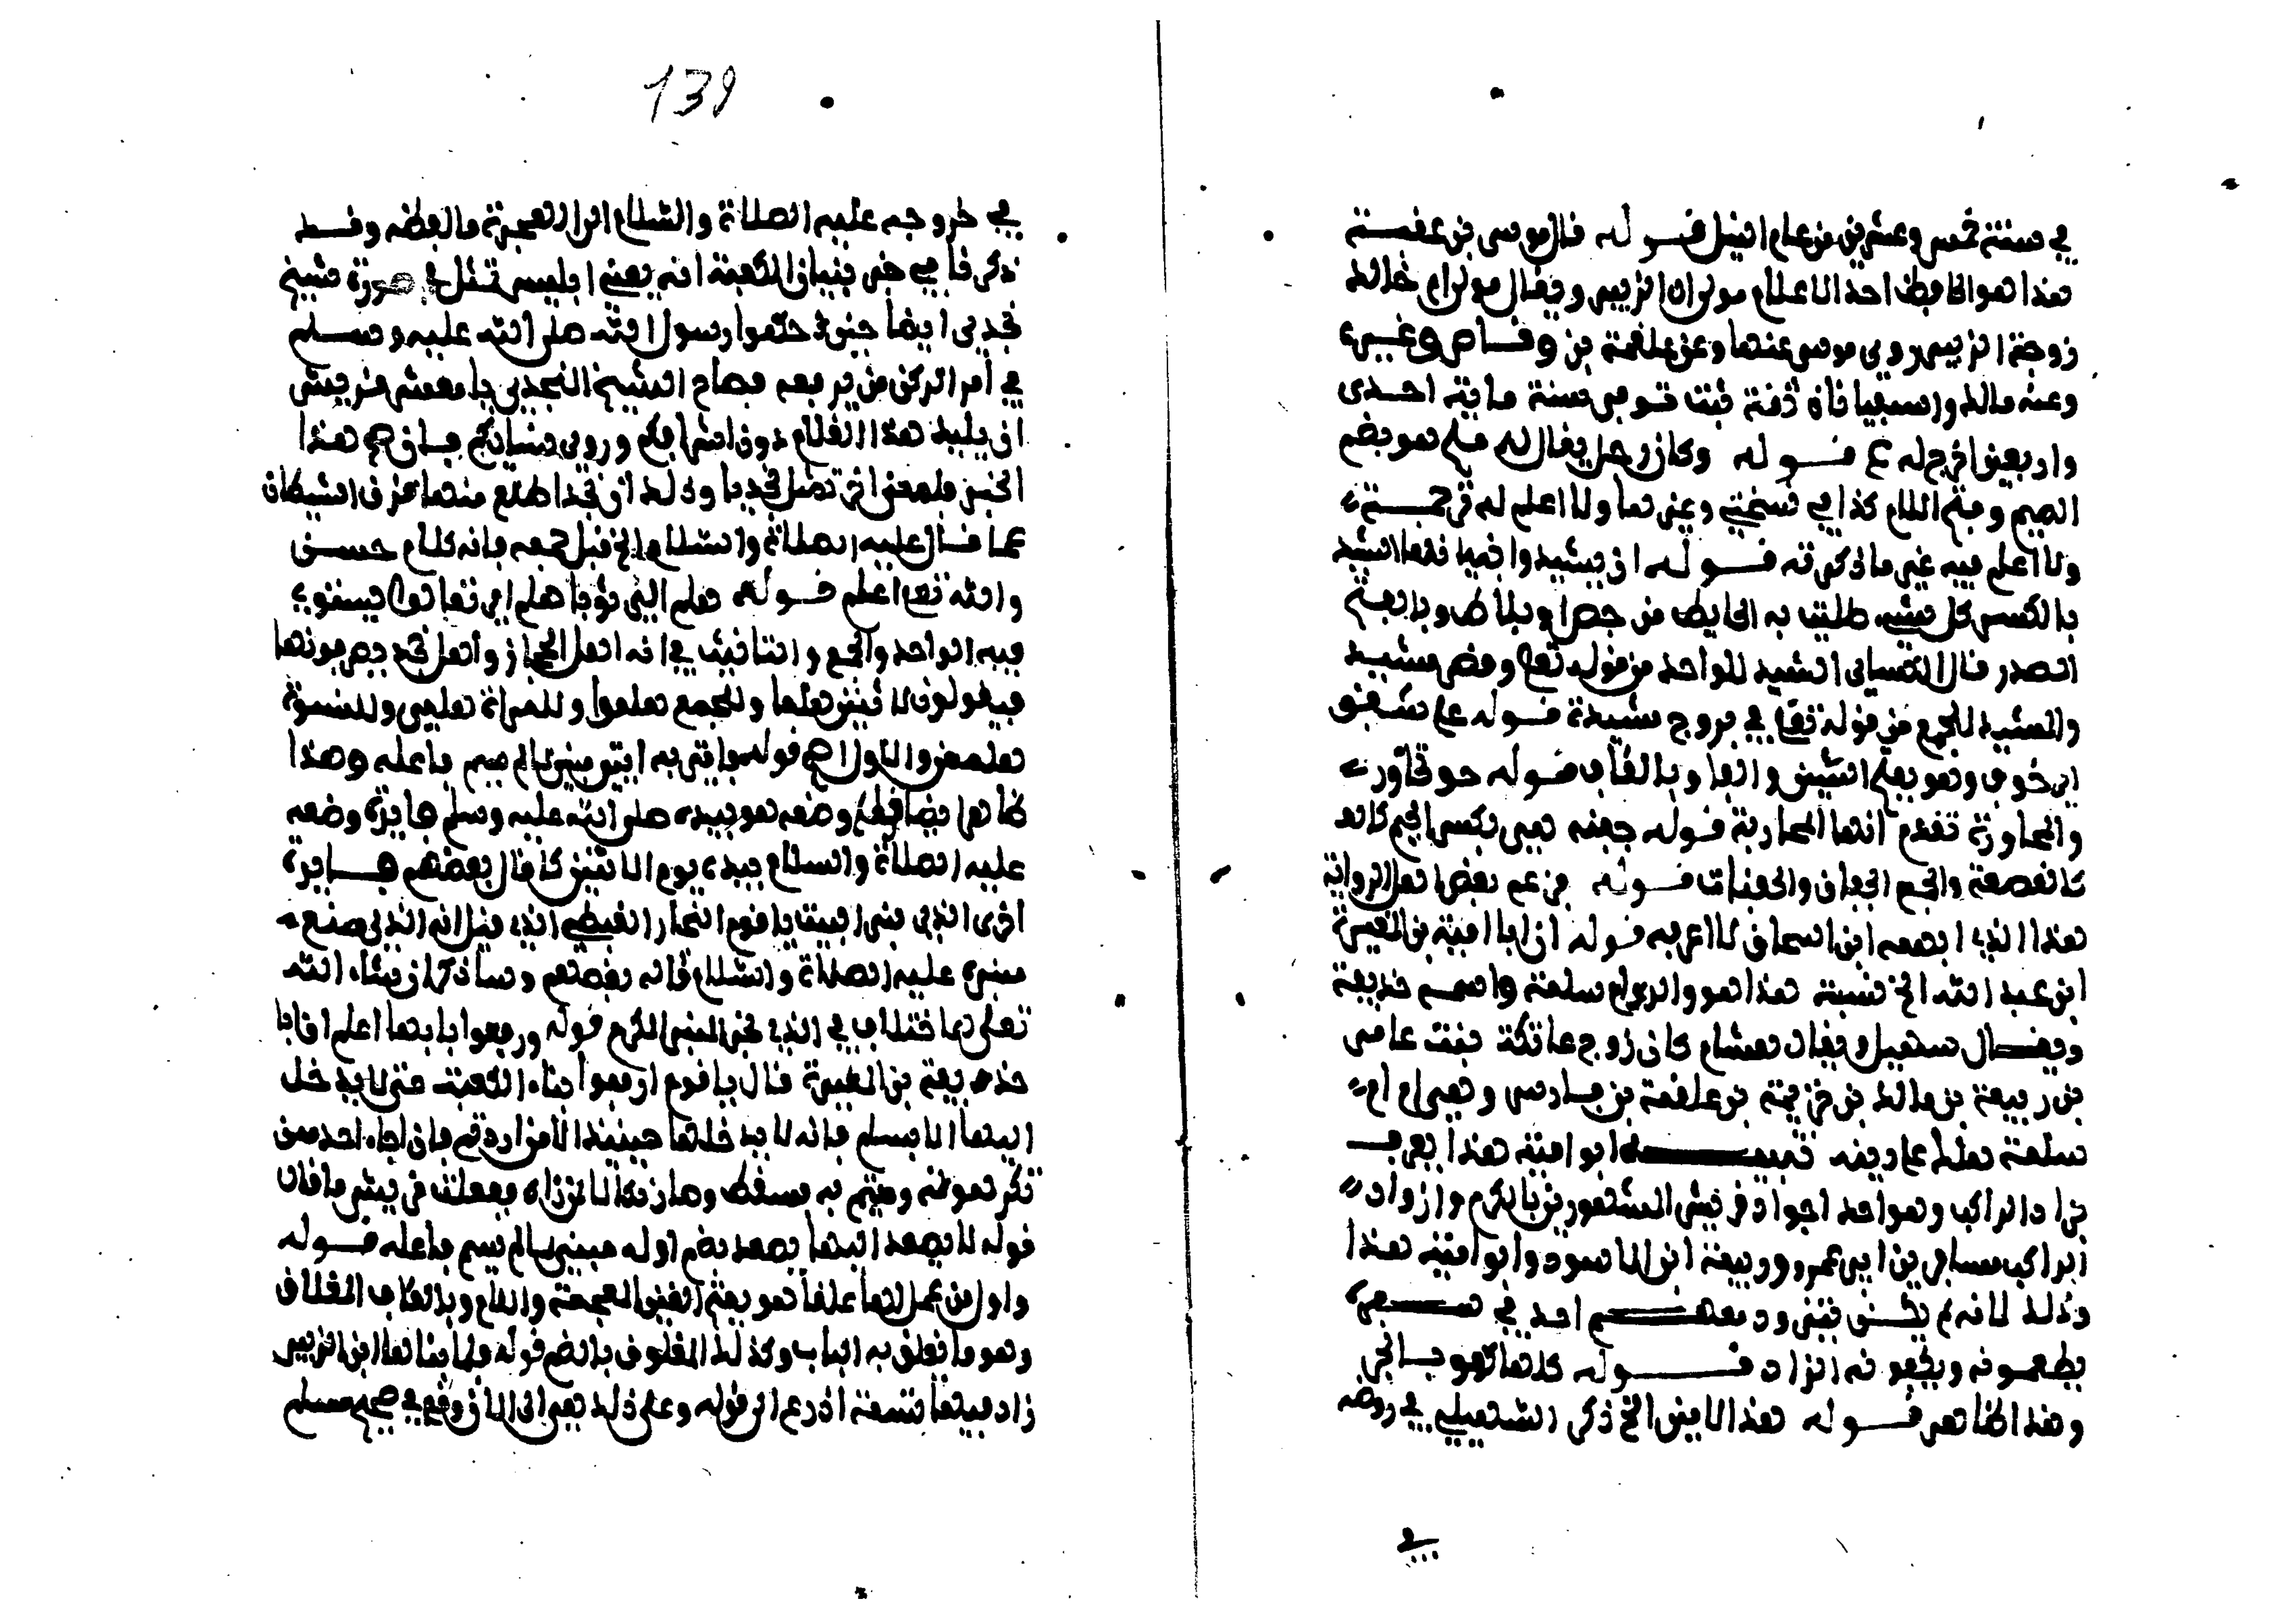 في سنة خمس وعشرين من عام الفيل قوله قال موسى بن عقبة
هذا هو الحافظ احد الاعلام مولى ال الزبير ويقال مولى ام خالد
زوجة الزبير روى موسى عنها وعن علقمة بن وقاص وغيره
وعنه مالك والسفيانان ثقة ثبت توفي سنة ماية احدى
واربعين اخرج له ع قوله وكان رجل يقال له مليح هو بضم
الميم وفتح اللام كذا في نسختي وغيرها ولا اعلم له ترجمة
ولا اعلم فيه غير ما ذكرته قوله ان يشيدوا بنيانها الشيد
بالكسر كل شيء طليت به الحايط من جص او بلاط وبالفتح
المصدر قال الكسائي المشيد للواحد من قوله تعالى وقصر مشيد
والمشيد للجمع من قوله تعالى في بروج مشيدة قوله على شفق
اي خوف وهو بفتح الشين والفا وبالقاف قوله حو تحاورت
والمحاورة تقدم انها المحاربة قوله جفنه هي بكسر الجيم كانه
كالقصعة والجمع الجفان والجفنات قوله فزعم بعض اهل الرواية
هذا الذي ابهمه ابن اسحاق لا اعرفه قوله ان ابا امية بن المغيرة
ابن عبد الله الخ نسبته هذا هو والد ام سلمة واسمه حذيفة
ويقال سهيل ويقال هشام كان زوج عاتكة بنت عامر
بن ربيعة بن مالك بن خزيمة بن علقمة بن فارس وهي ام ام
سلمة هلك على دينه تنبيه ابو امية هذا يعرف
بزاد الراكب وهو احد اجواد قريش المشهورين بالكرم وازواد
الراكب مسافر بن ابي عمرو وربيعة ابن الاسود وابو امية هذا
وذلك لانه لم يكن يتزود معهم احد في سفره
يطعمونه ويكفونه الزاد قوله كلها هو بالجر
وهذا ظاهر قوله هذا الامين الخ ذكر السهيلي في روضه
في
139
في خروجه عليه الصلاة والسلام الى الهجرة ما لفظه وقد
ذكرنا في خبر بنيان الكعبة انه يعني ابليس تمثل في صورة شيخ
نجدي ايضا حين حكموا رسول الله صلى الله عليه وسلم
في امر الركن من يرفعه فصاح الشيخ النجدي يا معشر قريش
ان يليه هذا الغلام دون اشرافكم وذوي اسنانكم فان صح هذا
الخبر فلمعنى اخر تمثل نجديا وذلك ان نجدا طلع منها قرن الشيطان
كما قال عليه الصلاة والسلام الخ فتراجعه فانه كلام حسن
والله تعالى اعلم قوله هلم الي ثوبا هلم اي تعالوا يستوي
فيه الواحد والجمع والتانيث في لغة اهل الحجاز واهل نجد يصرفونها
فيقولون للاثنين هلما وللجمع هلموا وللمراة هلمي وللنسوة
هلممن والاول افصح قوله فاتي به اتي مبني لما لم يسم فاعله وهذا
ظاهر ايضا قوله وضعه هو بيده صلى الله عليه وسلم فايدة وضعه
عليه الصلاة والسلام بيده يوم الاثنين كما قال بعضهم فايدة
اخرى الذي بنى البيت باقوم النجار القبطي الذي قيل انه الذي صنع
منبره عليه الصلاة والسلام قاله بعضهم وسا ذكر ان شاء الله
تعالى اختلاف في الذي نجر المنبر المكرم قوله ورفعوا بابها اعلم ان ابا
حذيفة بن المغيرة قال يا قوم ارفعوا بناء الكعبة حتى لا يدخل
اليها الا بسلم فانه لا يدخلها حينئذ الا من اردتم فان جاء احد ممن
تكرهونه رميتم به فسقط وصار نكالا لمن راه ففعلت قريش ما قال
قوله لا يصعد اليها يصعد بضم اوله مبني لما لم يسم فاعله قوله
واول من عمل لها غلقا هو بفتح الغين المعجمة واللام وبالقاف المغلاق
وهو ما يغلق به الباب وكذلك المغلوق بالضم قوله ولما بناها ابن الزبير
زاد فيها تسعة اذرع الى قوله وعلى ذلك هي الى الان وقع في صحيح مسلم